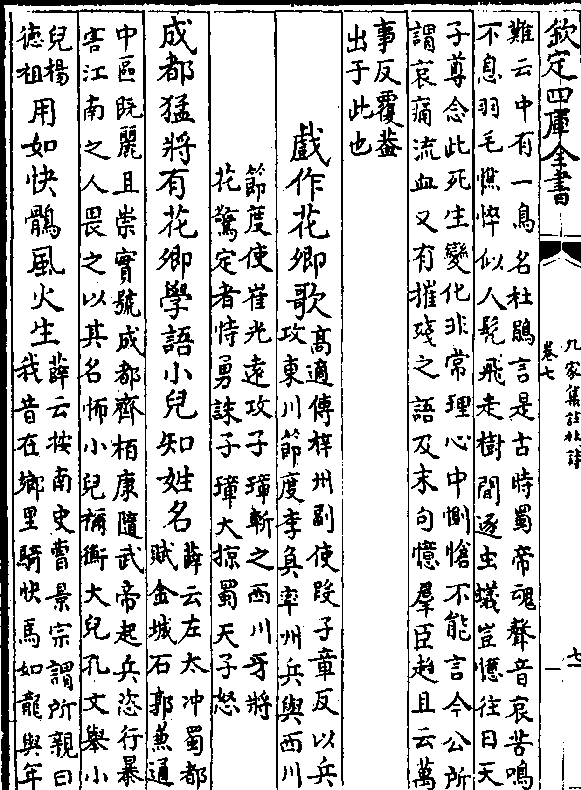 欽定四庫全書
九家集註杜詩
卷七
七
難云中有一鳥名杜鵑言是古時蜀帝魂聲音哀苦鳴
不息羽毛憔悴似人髠飛走樹間逐虫蟻豈憶往日天
子尊念此死生變化非常理心中惻愴不能言今公所
謂哀痛流血又有摧殘之語及末句憶羣臣趍且云萬
事反覆葢
出于此也
戲作花卿歌
高適傳梓州副使段子章反以兵
攻東川節度李奐率州兵與西川
節度使崔光遠攻子璋斬之西川牙將
花驚定者恃勇誅子璋大掠蜀天子怒
成都猛將有花卿學語小兒知姓名
薛云左太冲蜀都
賦金城石郭兼通
中區旣麗且崇實號成都齊栢康隨武帝起兵恣行暴
害江南之人畏之以其名怖小兒禰衡大兒孔文舉小
兒楊
德祖
用如快鶻風火生
薛云按南史曹景宗謂所親曰
我昔在鄉里騎快馬如龍與年